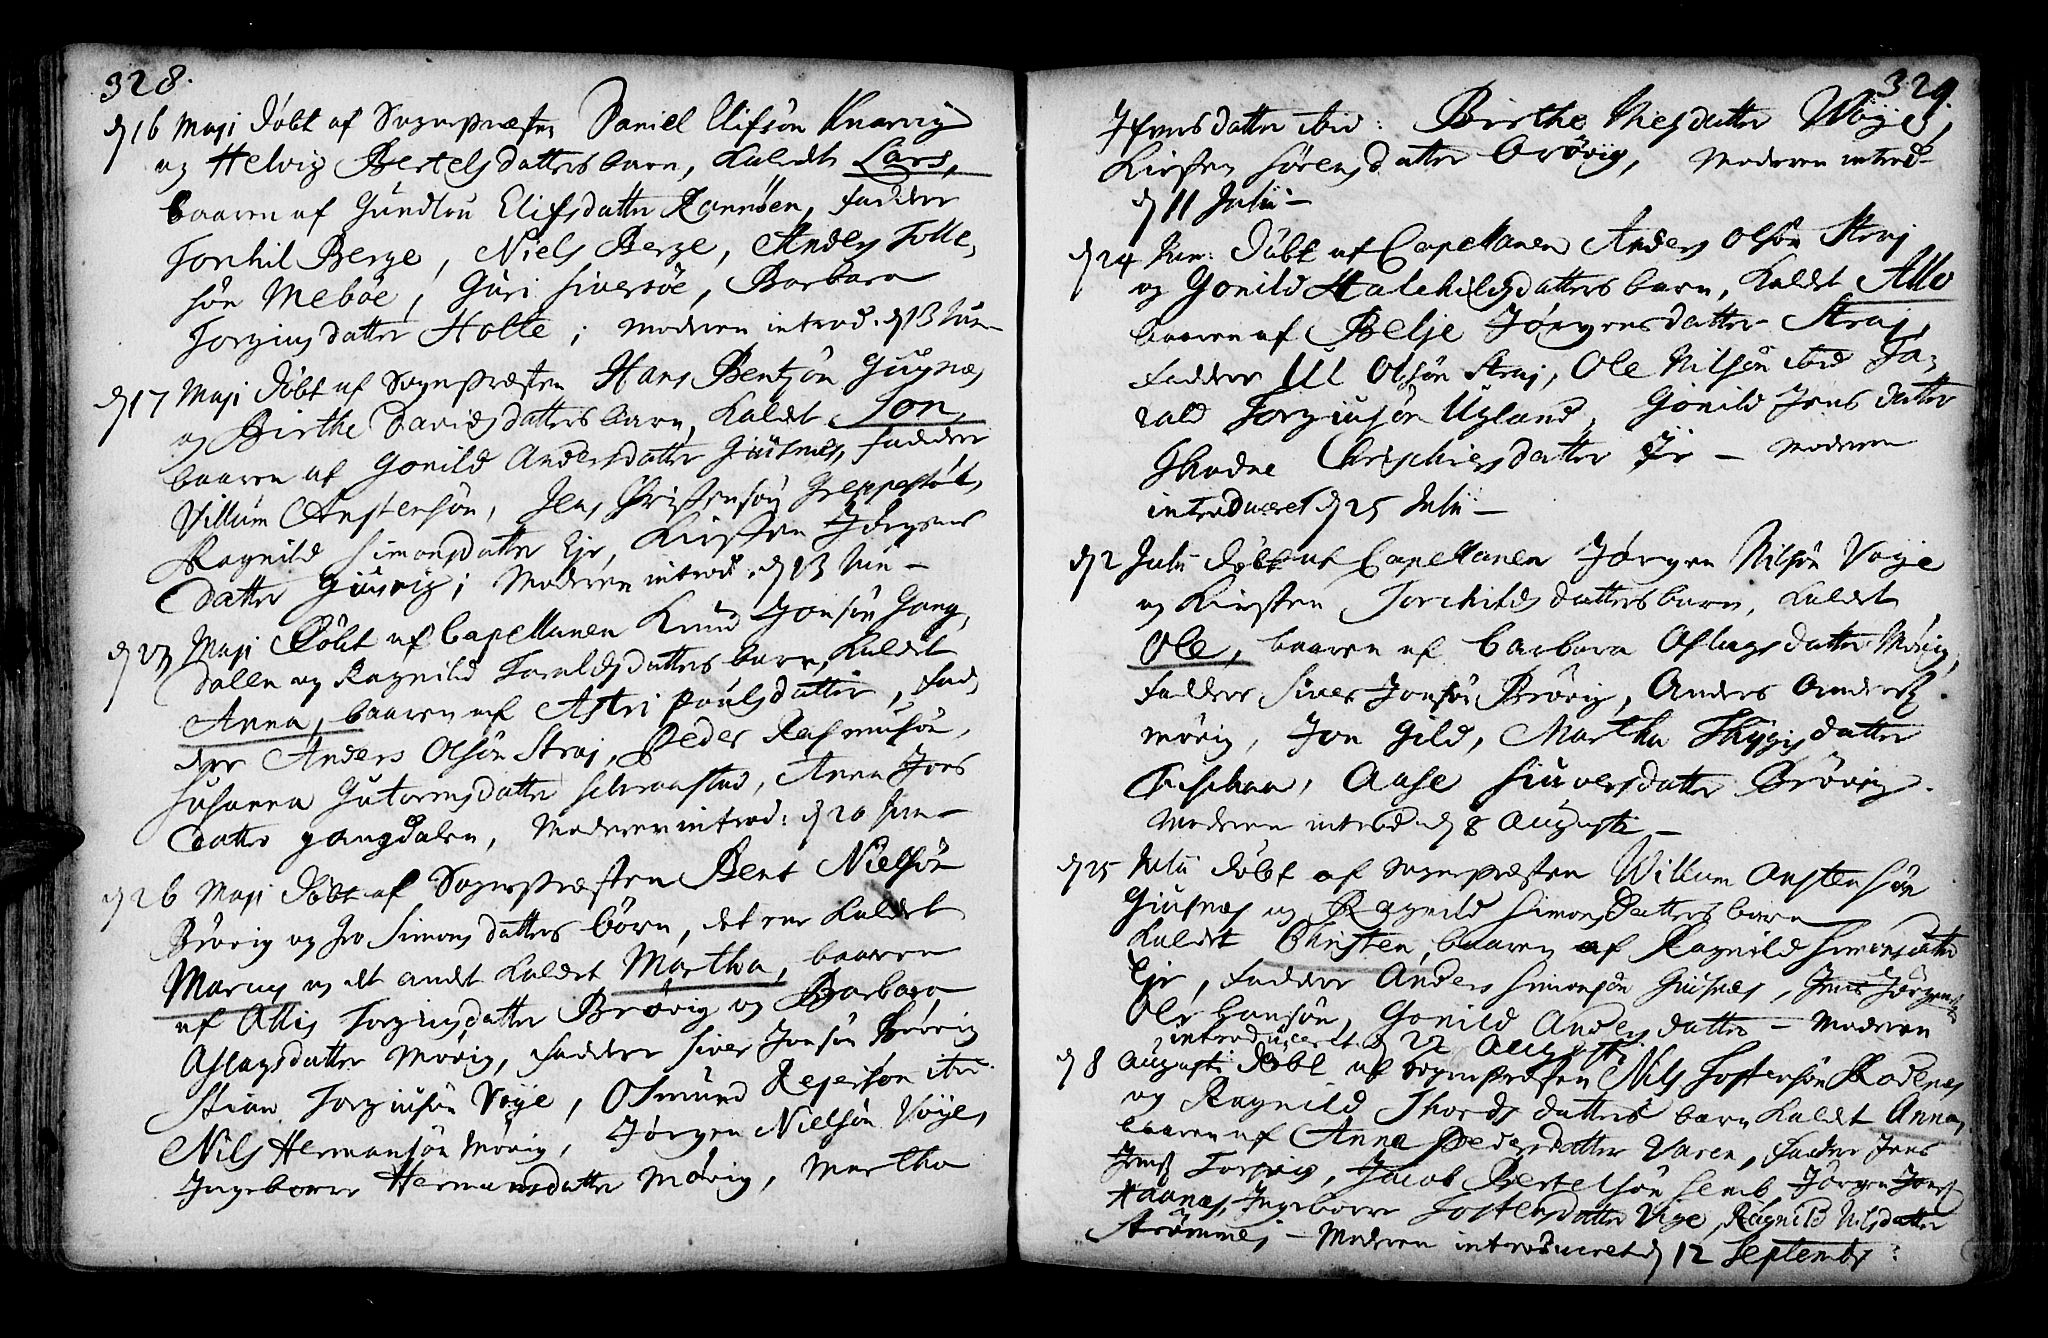 328.
d 16 Maji döbt af Sognepræsten Daniel Elifsön Knarvig
og Helvig Bertels datters barn, kaldt Lars,
baaren af Gundlou Elifsdatter Rannöen, Faddere
Torkil Berge, Niels Berge, Anders Tolle,
sön Meböe, Guri Siversöe, Barbara
Torgiusdatter Holte; Moderen introd. d 13 Jun
d 17 Maji döbt af Sognepræsten Hans Bentsön Giusnæs
og Birthe Davids datters barn, kaldt Jon,
baaren af Gonild Andersdatter Giusnæs, Faddere
Villum Anstensön, Jens Christensön Greppestöl,
Ragnild Simonsdatter Eje, Kirsten Jörgens
datter Giusvig; Moderen introd. d 13 Jun
d 23 Maji Döbt af Capellanen Knud Jonsön Gang,
dalen og Ragnild Taralds datters barn, kaldt
Anna, baaren af Astri Poulsdatter, Fad,
dere Anders Olsön Straj, Peder Rasmusön,
Susanna Gutormsdatter, Anna Jons
datter gangdalen, Moderen introd: d 20 Jun
d 26 Maji döbt af Sognepræsten Bent Nielsön
Brövig og Simons datters börn, det ene kaldet
Marcus og det andet kaldet Martha, baaren
af Allis Torgiusdatter Brövig og Barbara
Aslagsdatter Mövig, Faddere Siver Jonsön Brövig
Stian Torgiusön Vöye, Osmund Rejersön ibid.
Nils Hermansön Mövig, Jörgen Nielsön Vöye,
Ingeborre Hermansdatter Mövig, Martha
329.
Ifversdatter ibid: Birthe Nielsdatter Wöye,
Kirsten Sörens datter Brövig, Moderen introd
d 11 Julii
d 24 Jun: döbt af Capellanen Anders Olsön Straj
og Gonild Halchilds datters barn, kaldt
baaren af Belje Jörgens datter Straj,
Faddere Ull Olsön Straj, Ole Nilsön ibid Ta,
rald Torgiusön Ugland, Gonild Jens datter
Christiens datter Moderen
introduceret d 25 Julii
d 2 Julii döbt af Capellanen Jörgen Nilsön Voye
og Kirsten Torchilds datters barn, kaldet
Ole, baaren af Barbara Aslags datter Mövig,
Faddere Siver Jonsön Brövig, Anders Anders.
mövig, Jon Gild, Martha datter
Aase Siuversdatter Brövig.
Moderen introd d 8 Augusti
d 25 Julii döbt af Sognepræsten Willum Anstensön
Giusnæs og Ragnild Simons datters barn
kaldet Christen, baaren af Ragnild Simonsdatter
Eje, Faddere Anders Simonsön Giusnæs, Jens Jörgens
Ole Hansön, Gonild Anders datter Moderen
introduceret d 22 Augusti
d 8 Augusti döbt af Sognepræsten Nils Tostensön Rodenæs
og Ragnild Thords datters barn kaldet Anna,
baaren af Anna Pedersdatter Varen, Fadder Jens
Jens. Torsvig, Jacob Bertelsön Semb, Jörgen Jens.
Haanæs, Ingeborre Tostensdatter Vige, Ragnild Nilsdatter
Strömme, Moderen introduceret d 12 Septembr: